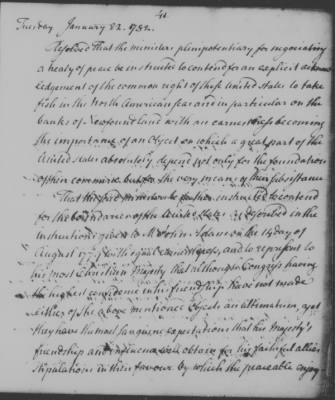 41.
Tuesday January 1782.
Resolved That the ministers plenipotentiary for negociating
a treaty of peace be instructed to contend for an explicit acknow-
ledgement of the common right of these United States to take
fish in the North American seas and in particular on the
banks of Newfoundland with an earnestness becoming
the importance of an object on which a great part of the
United States absolutely depend not only for the foundation
of their commerce but for the very means of their subsistence
That the said ministers be instructed to contend
for the boundaries of the United States as described in the
instructions given to Mr John Adams on the 14 day of
August with equal earnestness, and to represent to
his most Christian Majesty that although Congress having
the highest confidence in his friendship have not made
either of the above mentioned objects an ultimatum, yet
they have the most sanguine expectations that his Majesty's
friendship and influence will obtain for his faithful allies
stipulations in their favour by which the peaceable enjoy